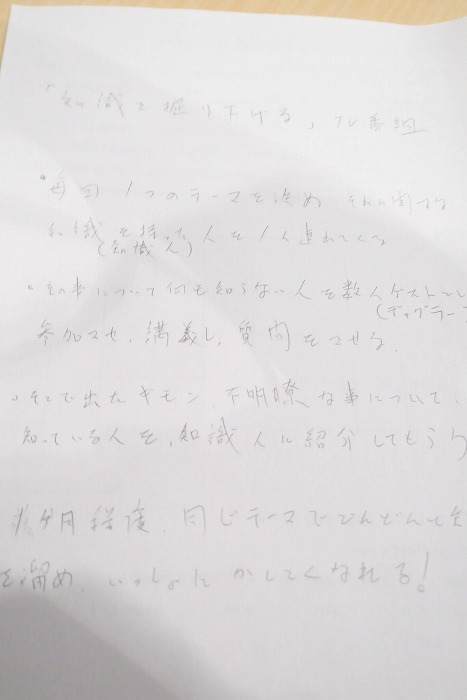 「知識を掘り下げる」TV番組
・毎回1つのテーマを決め それに関する
知識を持った人を1人連れてくる
(知識人)
・その事について何も知らない人を数人ゲストとし
(ディグラー
参加させ、講義し、質問をさせる。
・そこで出たギモン、不明瞭な事について、
知っている人を、知識人に紹介してもらう
1ヶ月程度、同じテーマでどんどんと
を溜め、いっしょに かしこくなれる!